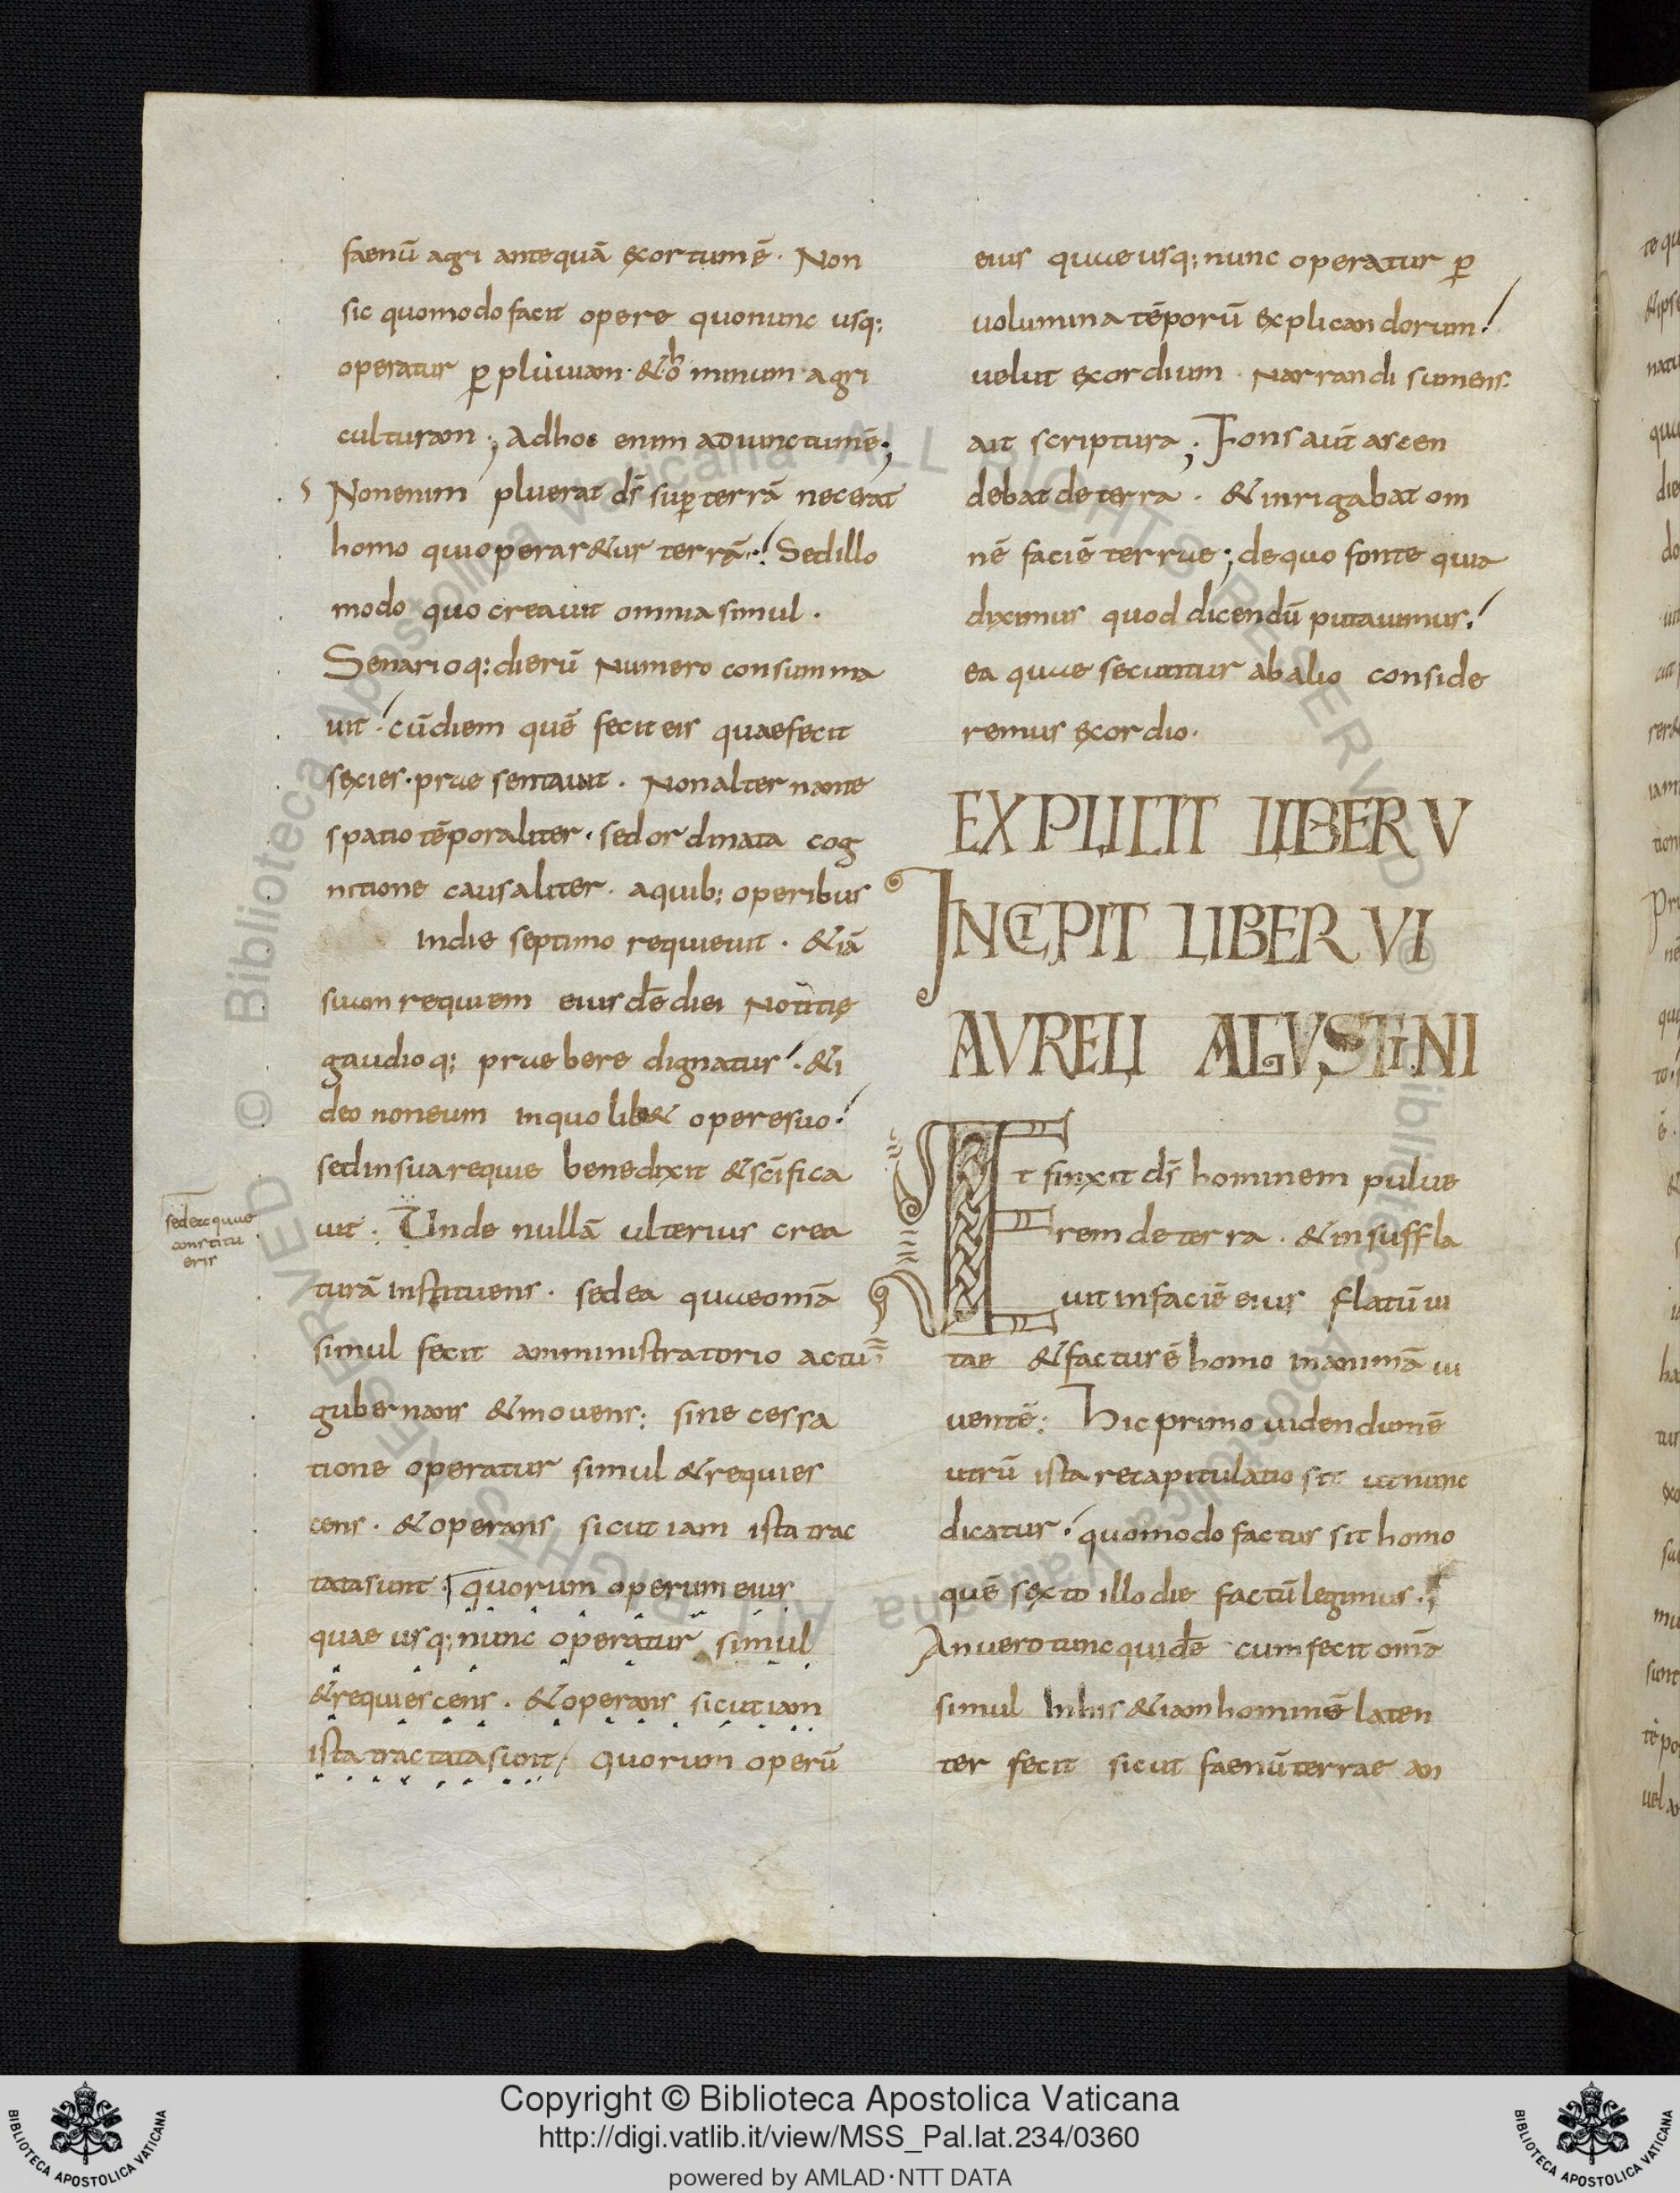 faenū agri antequā exortumē. Non
sic quomodo facit opere quonunc usq;
operatur ꝑ pluuiam. &hominum agri
culturam; Adhoc enim adiunctumē;
Nonenim pluerat ds̄ suꝑ terrā necerat
homo quioperar&ur terrā. Sedillo
modo quo creauit omnia simul.
Senarioq; dierū Numero consumma
uit. cūdiem quē fecit eis quaefecit
sexies. praesentauit. Nonalternante
spatio tēporaliter. sedordinata cog
nitione causaliter. aquib; operibus
indie septimo requieuit. &iā
suam requiem eiusdē diei Notitię
gaudioq; praebere dignatur. &i
deo noneum inquolib& operesuo.
sedinsuarequie benedixit &scīfica
uit. Unde nullā ulterius crea
sedeaquae
constitu
eris
turā instituens. sedea quaeomīa
simul fecit amministratorio actu
gubernans &mouens; sine cessa
tione operatur simul &requies
cens. &operans sicut iam ista trac
tatasunt. quorum operum eius
quae usq; nunc operatur simul
&requiescens. &operans sicutiam
ista tractatasunt/ quorum operū
eius quaeusq; nunc operatur ꝑ
uolumina tēporū explicandorum.
uelut exordium. Narrandi sumens
ait scriptura; Fons aut̄ ascen
debat deterra. &inrigabat om
nē faciē terrae; dequo fonte quia
diximus quod dicendū putauimus.
ea quae secuntur abalio conside
remus exordio.
EXPLICIT LIBER V
INCIPIT LIBER VI
AVRELI AGVSTINI
Et finxit ds̄ hominem pulue
rem deterra. &insuffla
uit infaciē eius flatū ui
tae &facturē homo inanimā ui
uentē: hic primo uidendumē
utrū ista recapitulatio sit ut nunc
dicatur. quomodo factus sit homo
quē sexto illodie factū legimus.
Anuero tunc quidē cumfecit omīa
simul Inhis &iamhominē laten
ter fecit sicut faenūterrae an
Copyright © Biblioteca Apostolica Vaticana
http://digi.vatlib.it/view/MSS_Pal.lat.234/0360
powered by AMLAD·NTT DATA
BIBLIOTECA APOSTOLICA VATICANA
BIBLIOTECA APOSTOLICA VATICANA